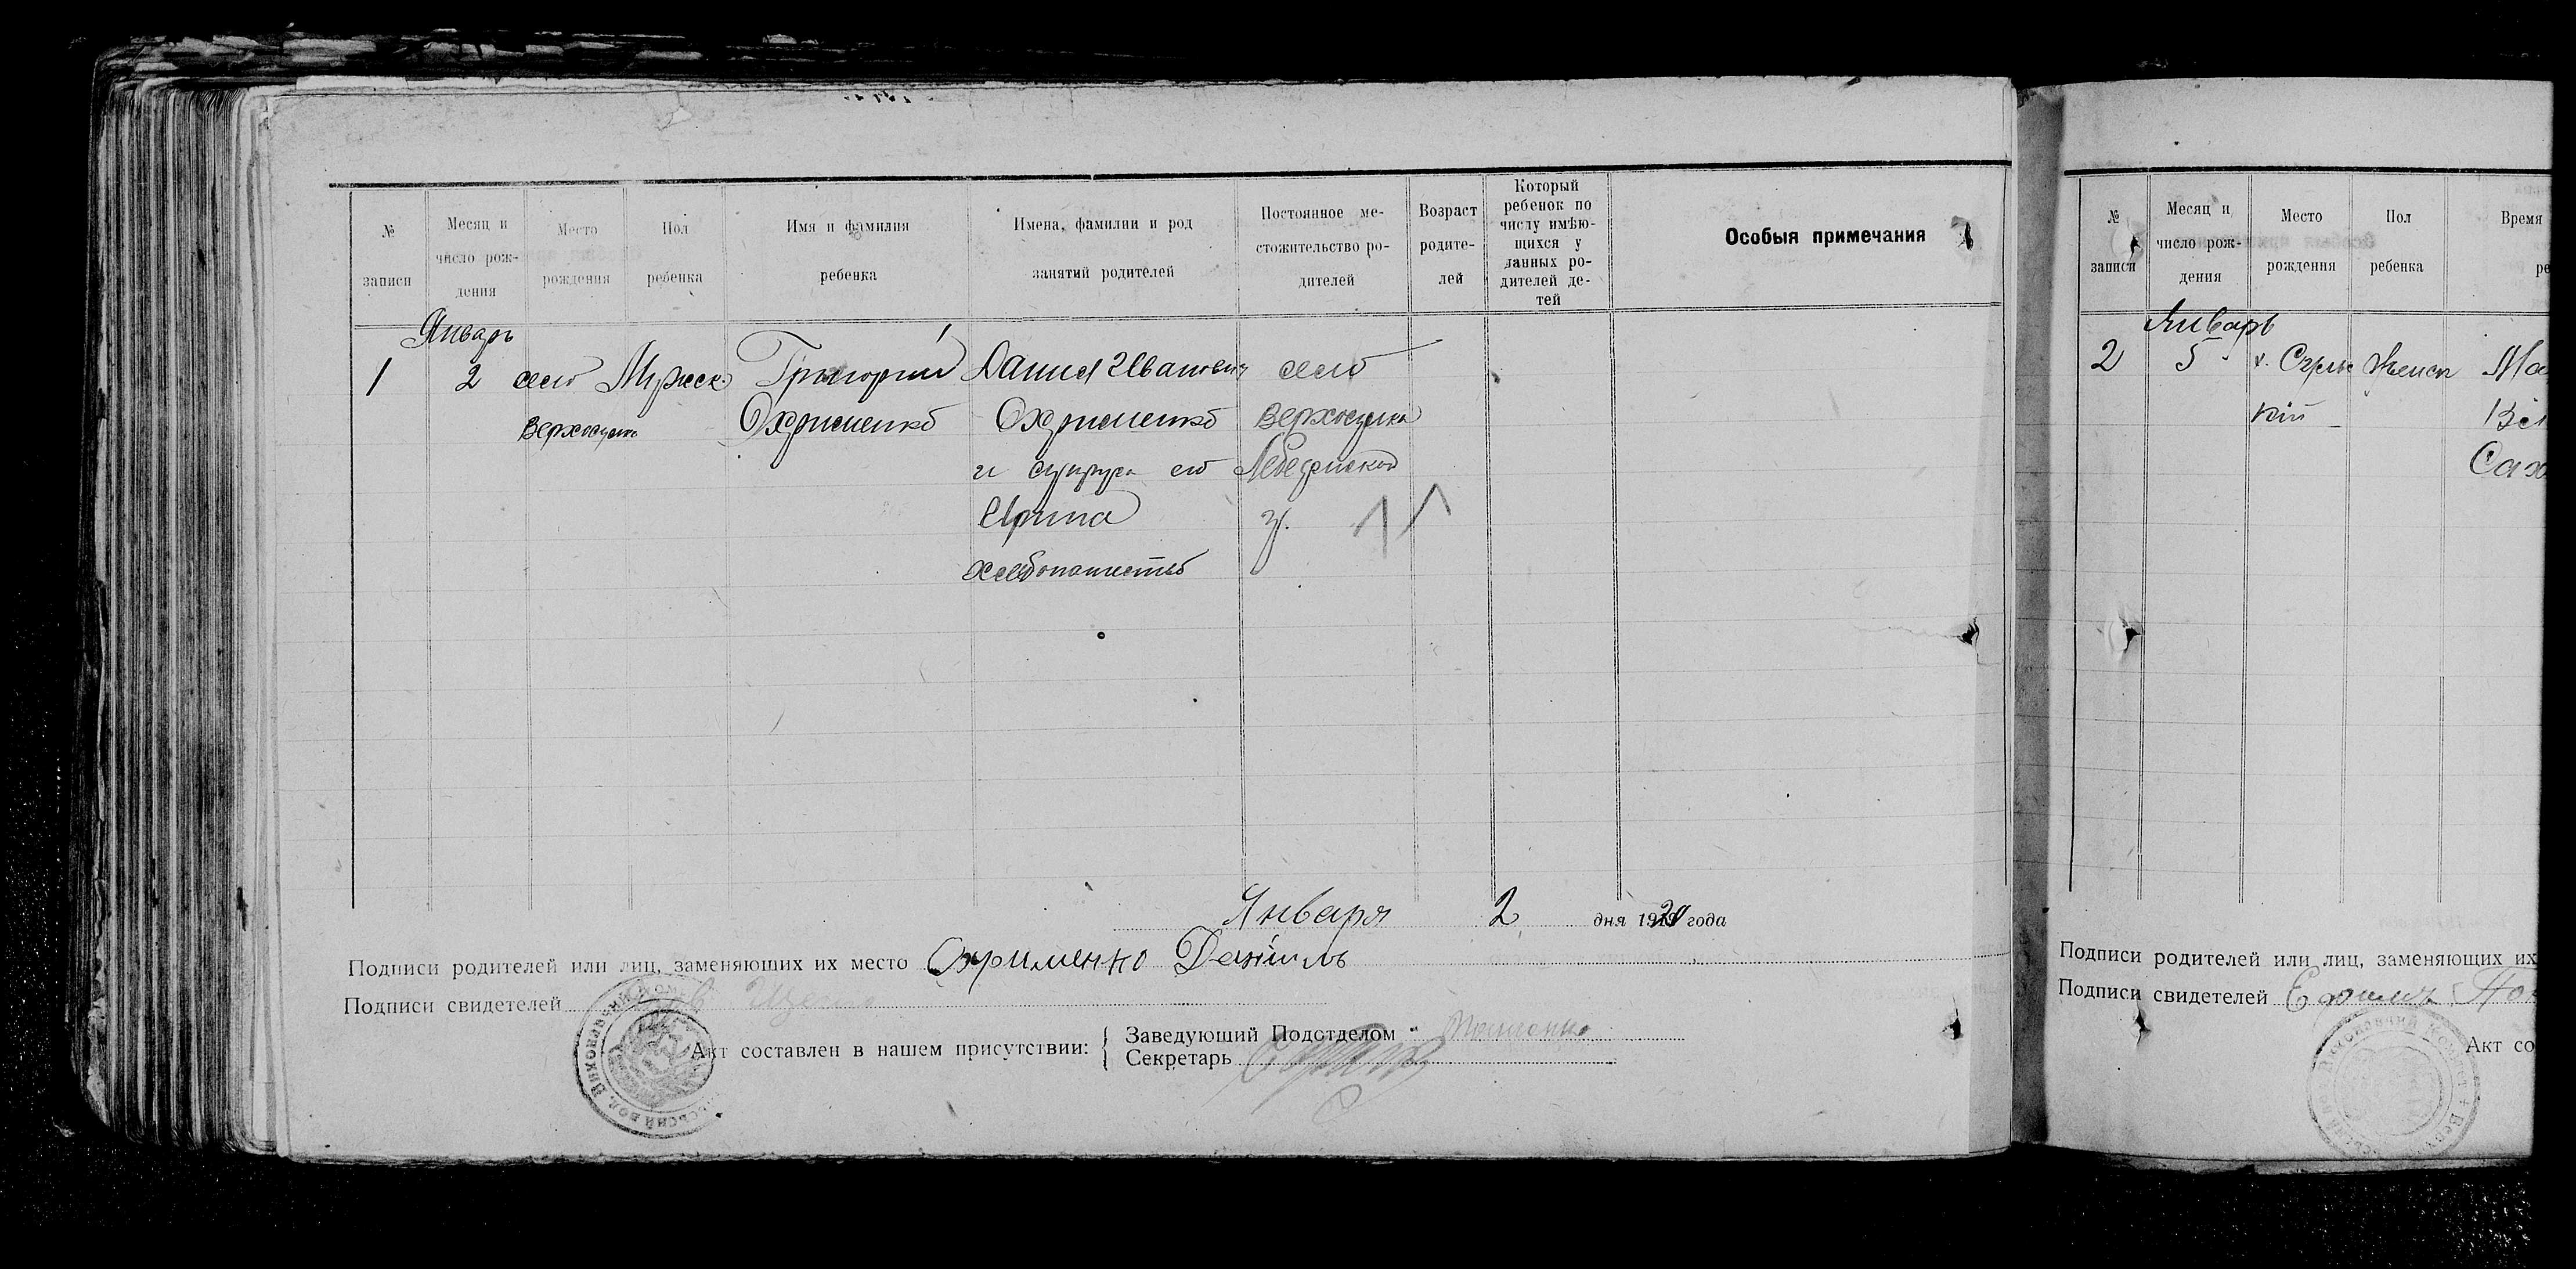 № записи
Месяц и число рождения
Место рождения
Пол ребенка
Имя и фамилия ребенка
Имена, фамилии и род занятий родителей
Постоянное местожительство родителей
Возраст родителей
Который ребенок по числу имѣющихся у данных родителей детей
Особыя примечания
Январь
1 2 село Мужск. Григорий Данил Иванович село
Охрименко Охрименко Верхосулка
и супруга его Лебединской
Ирина у.
хлебопашество
Января 2 дня 1920 года
Подписи родителей или лиц, заменяющих их место Охрименко Даніилъ
Подписи свидетелей
Акт составлен в нашем присутствии:
Заведующий Подотделом
Секретарь
№ записи
Месяц и число рождения
Место рождения
Пол ребенка
Время
Январь
2 5 Женск
Подписи родителей или лиц, заменяющих их
Подписи свидетелей
Акт со